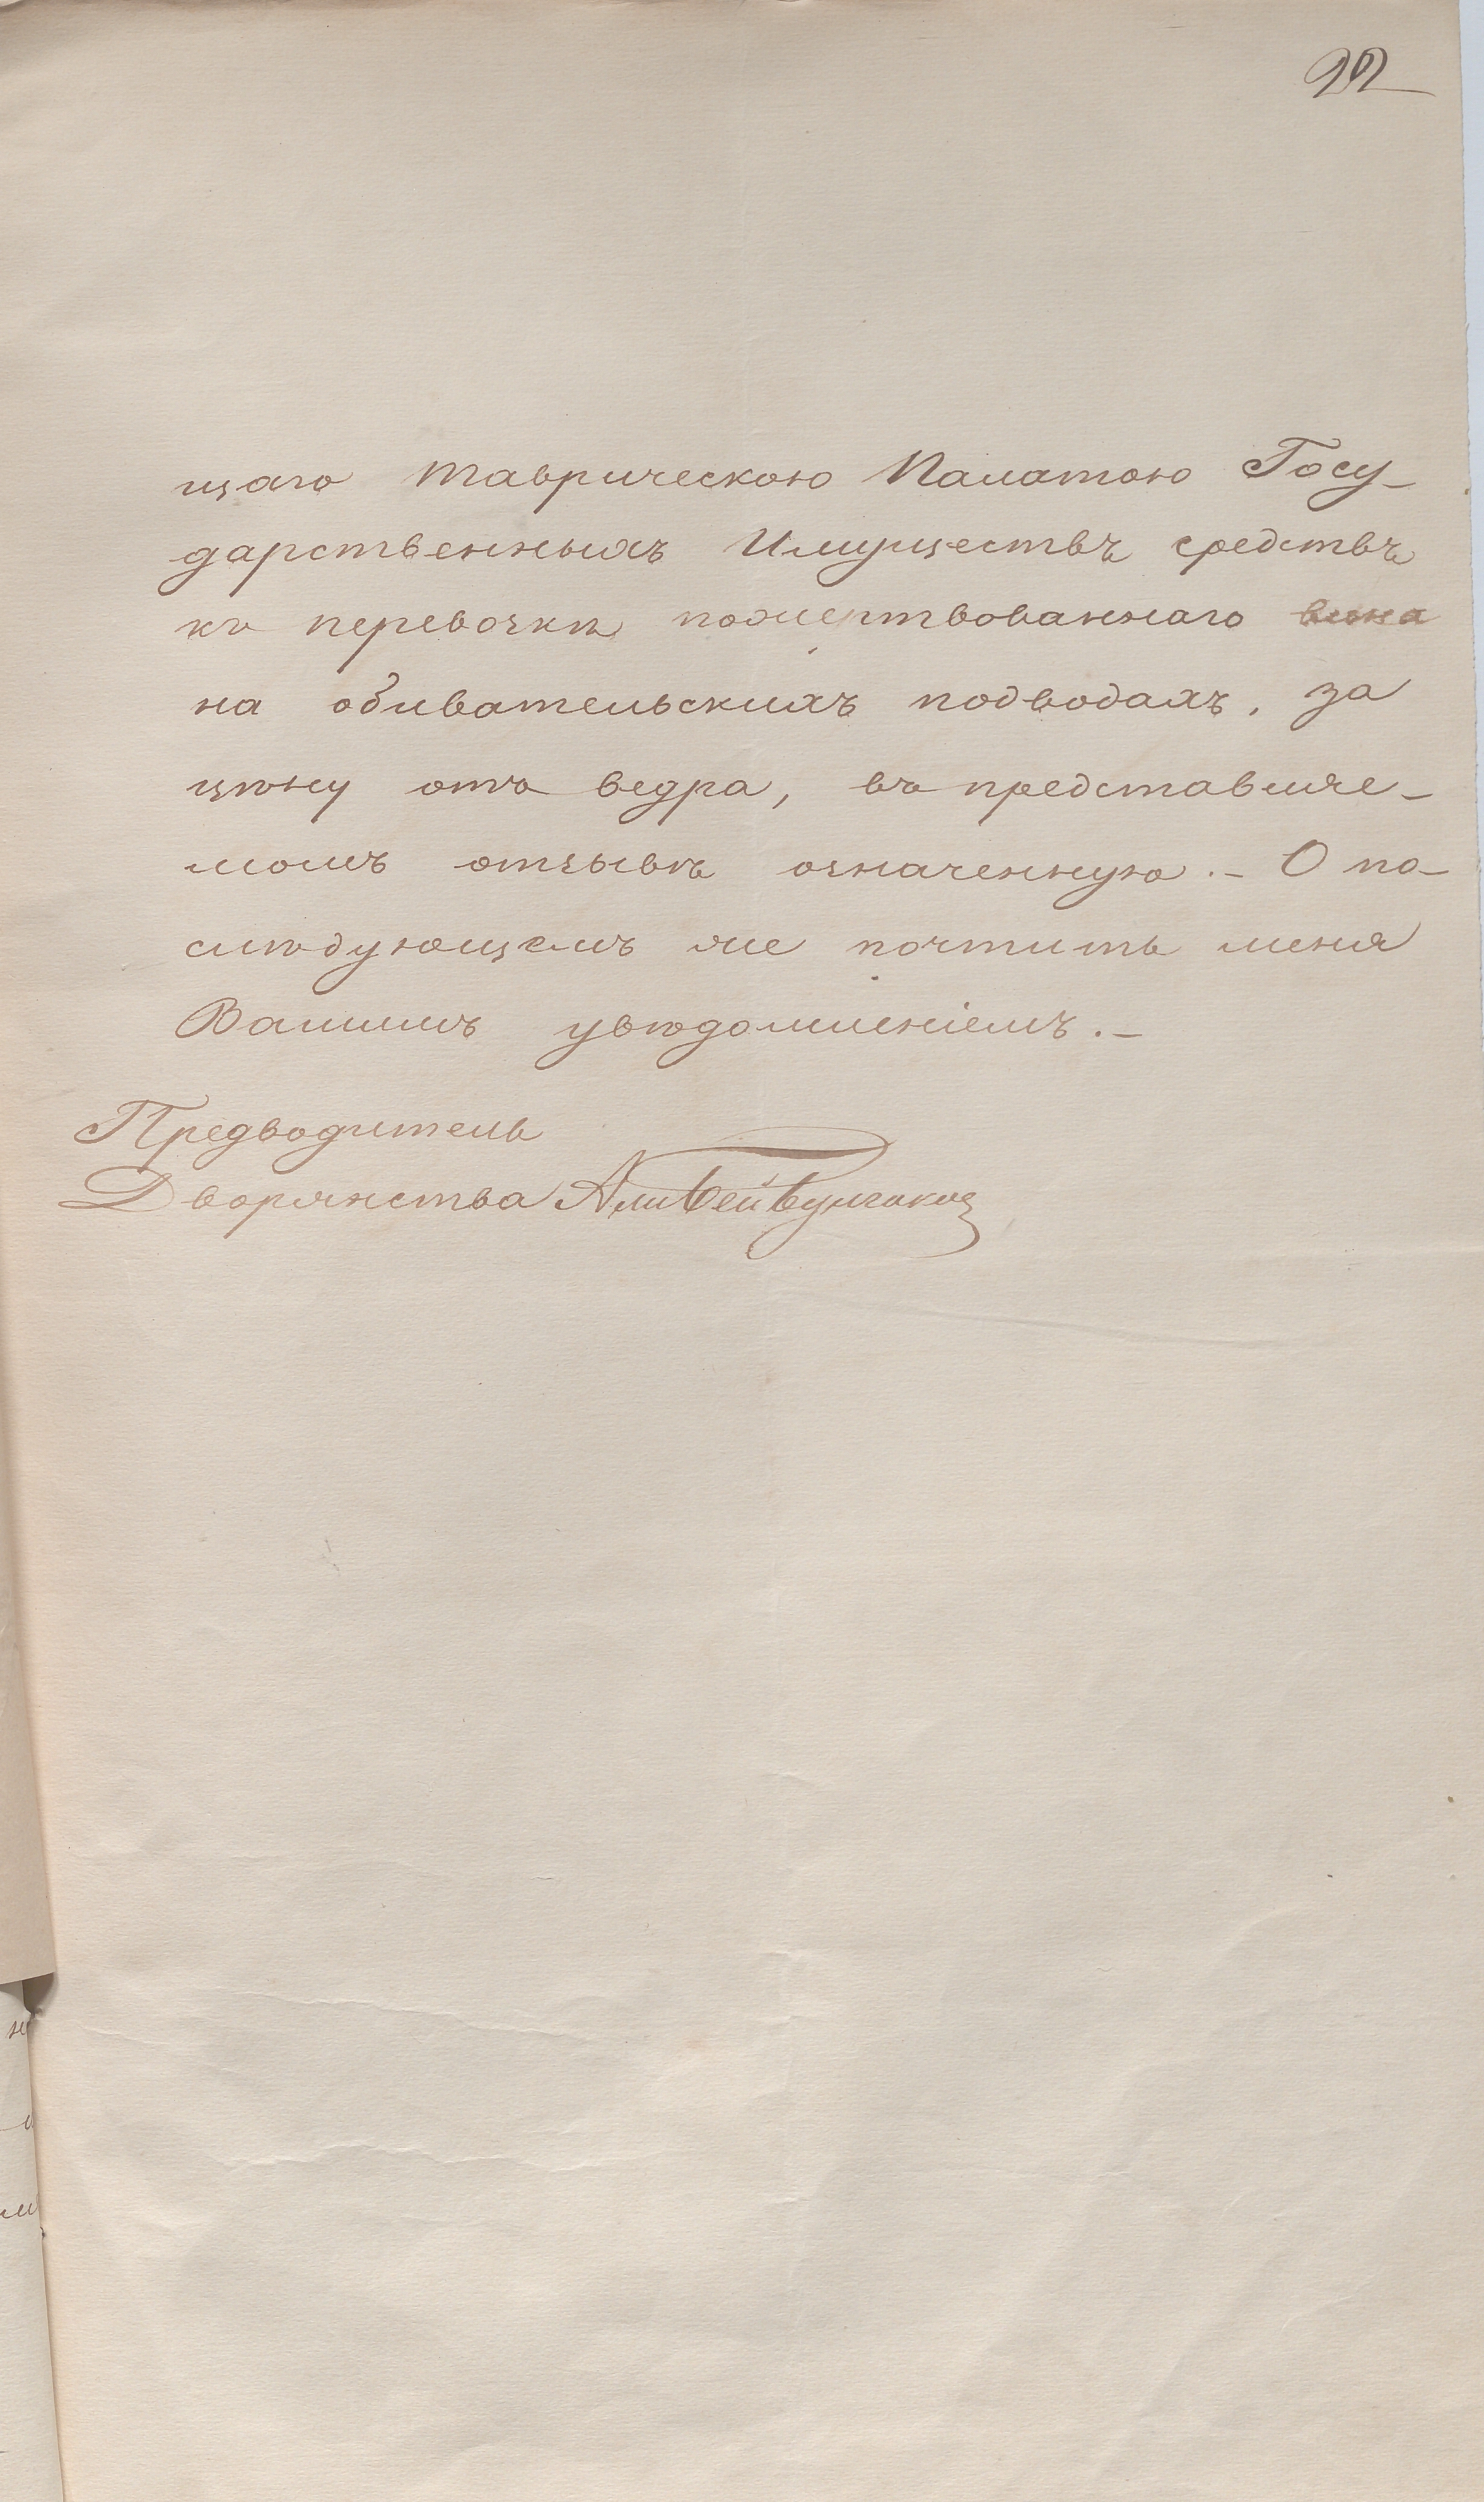 22
щаго Таврическою Палатою Госу-
дарственныхъ Имуществъ средствъ
къ перевозкѣ пожертвованнаго вина
на обивательскихъ подводахъ, за
цѣну отъ ведра, въ представляе-
момъ отзывѣ означенную. - О по-
слѣдующемъ же почтить меня
Вашимъ увѣдомленіемъ. -
Предводитель
Дворянства Али Бей Булгаковъ